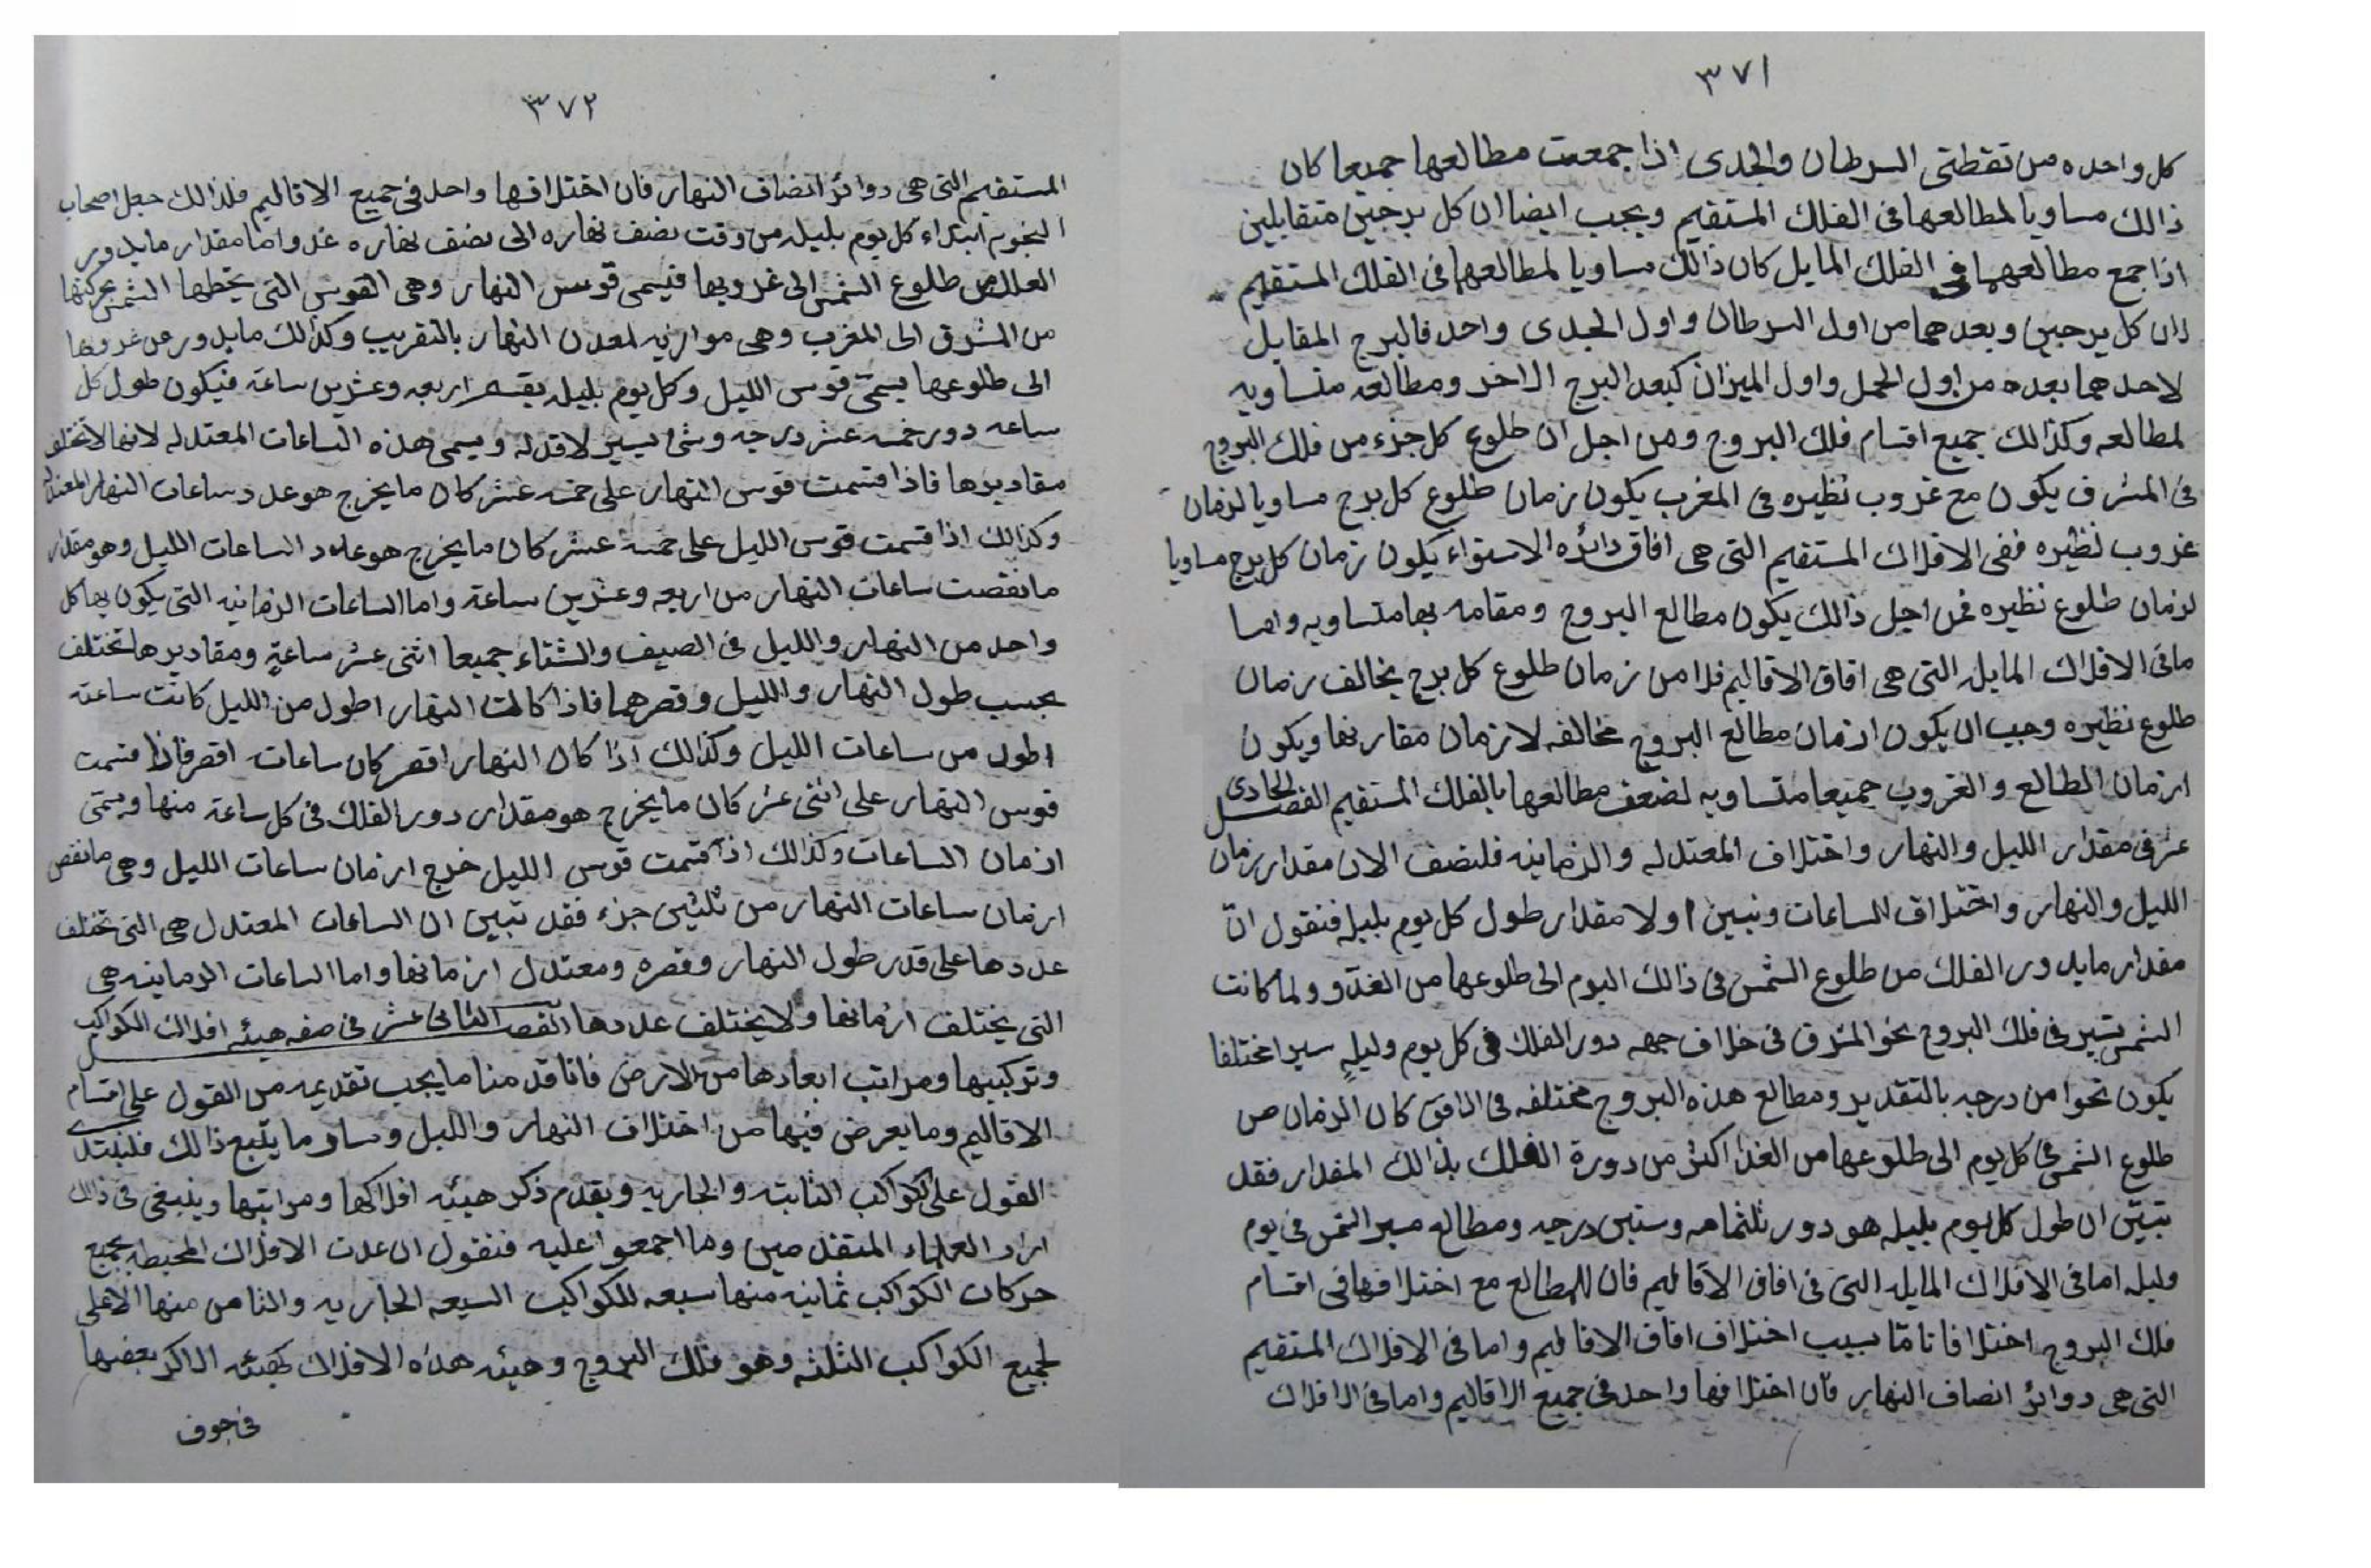 ٣٧١
كل واحده من نقطتى السرطان والجدى اذا جمعت مطالعها جميعا كان
ذالك مساويا لمطالعها فى الفلك المستقيم ويجب ايضا ان كل برجين متقابلين
اذا جمع مطالعهما فى الفلك المايل كان ذالك مساويا لمطالعهما فى الفلك المستقيم
لان كل برجين وبعدهما من اول السرطان واول الجدى واحد فالبرج المقابل
لاحدهما بعده من اول الحمل واول الميزان كبعد البرج الاخر ومطالعه متساويه
لمطالعه وكذالك جميع اقسام فلك البروج ومن اجل ان طلوع كل جزء من فلك البروج
فى المشرق يكون مع غروب نظيره فى المغرب يكون زمان طلوع كل برج مساويا لزمان
غروب نظيره ففى الافلاك المستقيم التى هى افاق دائره الاستواء يكون زمان كل برج مساويا
لزمان طلوع نظيره فمن اجل ذالك يكون مطالع البروج ومقامه بها متساويه واما
ما فى الافلاك المايله التى هى افاق الاقاليم فلا من زمان طلوع كل برج يخالف زمان
طلوع نظيره وجب ان يكون ازمان مطالع البروج مخالفه لازمان مقاربها ويكون
ازمان الطالع والغروب جميعا متساويه لضعف مطالعها بالفلك المستقيم الفصل الحادى
عشر فى مقدار الليل والنهار واختلاف المعتدله والزمانيه فلنصف الان مقدار زمان
الليل والنهار واختلاف الساعات ونبين اولا مقدار طول كل يوم بليله فنقول ان
مقدار ما يدور الفلك من طلوع الشمس فى ذالك اليوم الى طلوعها من الغد و ولما كانت
الشمس تسير فى فلك البروج نحو المشرق فى خلاف جهه دور الفلك فى كل يوم وليله سيرا مختلفا
يكون نحوا من درجه بالتقدير ومطالع هذه البروج مختلفه فى الافق كان الزمان من
طلوع الشمس فى كل يوم الى طلوعها من الغد اكثر من دورة الفلك بذالك المقدار فقد
تبيّن ان طول كل يوم بليله هو دور ثلثمامه وستين درجه ومطالع مسير الشمس فى يوم
وليله اما فى الافلاك المايله التى فى افاق الاقاليم فان للمطالع مع اختلافها فى اقسام
فلك البروج اختلافا ثامّا بسبب اختلاف افاق الاقاليم واما فى الافلاك المستقيم
التى هى دوائر انصاف النهار فان اختلافها واحد فى جميع الاقاليم واما فى الافلاك
٣٧٢
المستقيم التى هى دوائر انصاف النهار فان اختلافها واحد فى جميع الاقاليم فلذالك جعل اصحاب
النجوم ابتداء كل يوم بليله من وقت نصف نهاره الى نصف نهاره غد واما مقدار ما يدور
الفلك من طلوع الشمس الى غروبها فيسمى قوس النهار وهى القوس التى يخطها الشمس بحركتها
من المشرق الى المغرب وهى موازيه لمعدن النهار بالتقريب وكذالك ما يدور من غروبها
الى طلوعها يسمّى قوس الليل وكل يوم بليله يقسم اربعه وعشرين ساعة فيكون طول كل
ساعه دور خمسه عشر درجه وشئ يسير لا قدر له ويسمى هذه الساعات المعتدله لانها لا تختلف
مقاديرها فاذا قسمت قوس النهار على خمسه عشر كان ما يخرج هو عدد ساعات النهار المعتدله
وكذالك اذا قسمت قوس الليل على خمسه عشر كان ما يخرج هو عدد الساعات الليل وهو مقدار
ما نقصت ساعات النهار من اربعه وعشرين ساعة واما الساعات الزمانيه التى يكون بها كل
واحد من النهار والليل فى الصيف والشتاء جميعا اثنى عشر ساعةٍ ومقاديرها تختلف
بحسب طول النهار والليل وقصرهما فاذا كالت النهار اطول من الليل كانت ساعته
اطول من ساعات الليل وكذالك اذا كان النهار اقصر كان ساعات اقصر فاذا قسمت
قوس النهار على اثنى عشر كان ما يخرج هو مقدار دور الفلك فى كل ساعة منها ويسمّى
ازمان الساعات وكذالك اذا قسمت قوس الليل خرج ازمان ساعات الليل وهى ما نقص
ازمان ساعات النهار من ثلثين جزء فقد تبين ان الساعات المعتدل هى التى تختلف
عددها على قدر طول النهار وقصره ومعتدل ازمانها واما الساعات الزمانيه هى
التى يختلف ازمانها ولا يختلف عددها الفصل الثانى عشر فى صفه هيئه افلاك الكواكب
وتركيبها ومراتب ابعادها من الارض فانا قدمنا ما يجب تقديمه من القول على اقسام
الاقاليم وما يعرض فيها من اختلاف النهار والليل وساير ما يتبع ذالك فلنبتدى
القول على الكواكب الثابته والجاريه ويقدم ذكر هيئه افلاكها ومراتبها وينبغى فى ذالك
ايراد العلماء المتقدمين وما اجمعوا عليه فنقول ان عدت الافلاك المحيطه بجميع
حركات الكواكب ثمانيه منها سبعه للكواكب السبعه الجاريه والثامن منها الاعلى
لجميع الكواكب الثلثه وهو فلك البروج وهيئه هذه الافلاك كهيئه الاكر بعضها
فى جوف